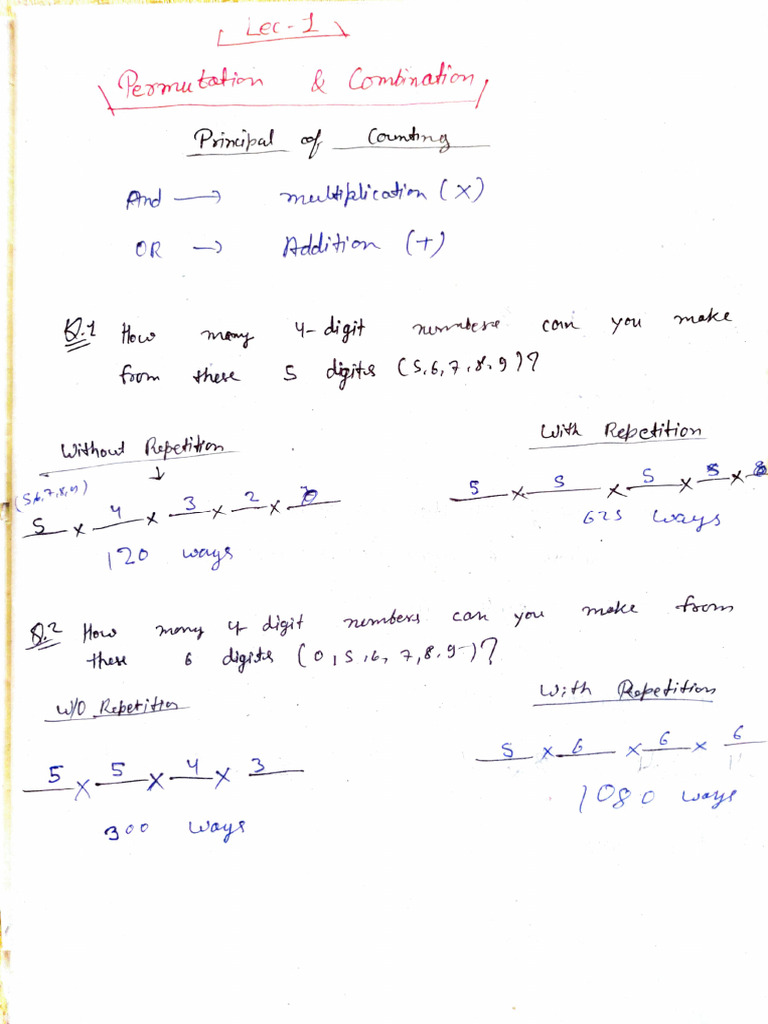 Lec-1
Permutation & Combination
Principal of Counting
And → multiplication (×)
OR → Addition (+)
Q.1 How many 4-digit numbers can you make
from these 5 digits (5,6,7,8,9)?
Without Repetition
With Repetition
(5,6,7,8,9)
5 × 4 × 3 × 2 ×
5 × 5 × 5 × 5 ×
120 ways
625 ways
Q.2 How many 4 digit numbers can you make from
these 6 digits (0,5,6,7,8,9)?
W/O Repetition
With Repetition
5 × 5 × 4 × 3
5 × 6 × 6 × 6
300 ways
1080 ways